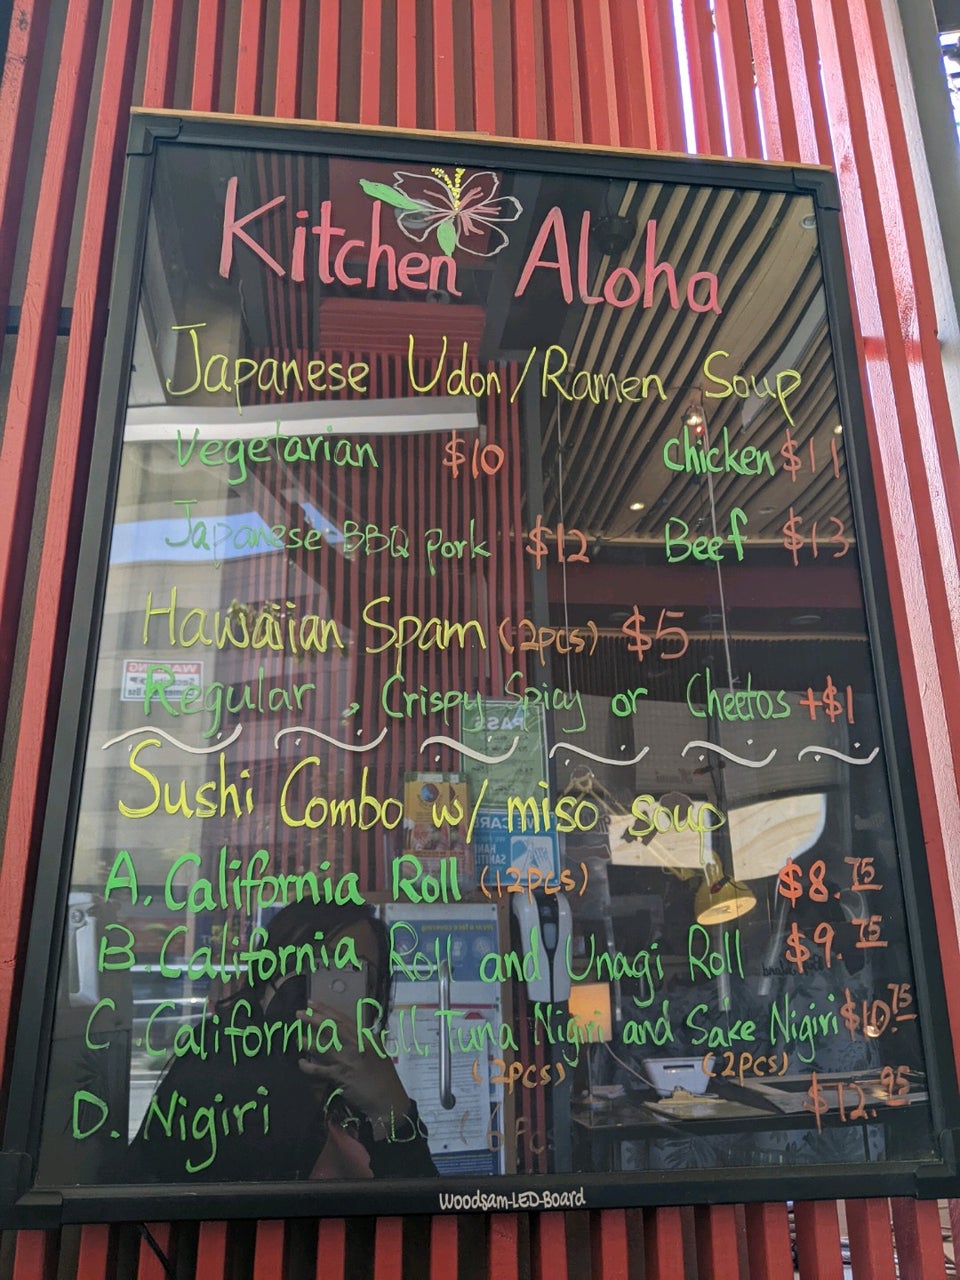 Kitchen Aloha
Japanese Udon/Ramen Soup
Vegetarian $10 Chicken $11
Japanese BBQ pork $12 Beef $13
Hawaiian Spam (2pcs) $5
Regular, Crispy Spicy or Cheetos +$1
Sushi Combo w/ miso soup
A. California Roll (12pcs) $8.75
B. California Roll and Unagi Roll $9.75
C. California Roll, Tuna Nigiri and Sake Nigiri $10.75
(2pcs) (2pcs)
D. Nigiri Combo (6pcs $12.95
Woodsam-LED-Board
WARNING
PASS